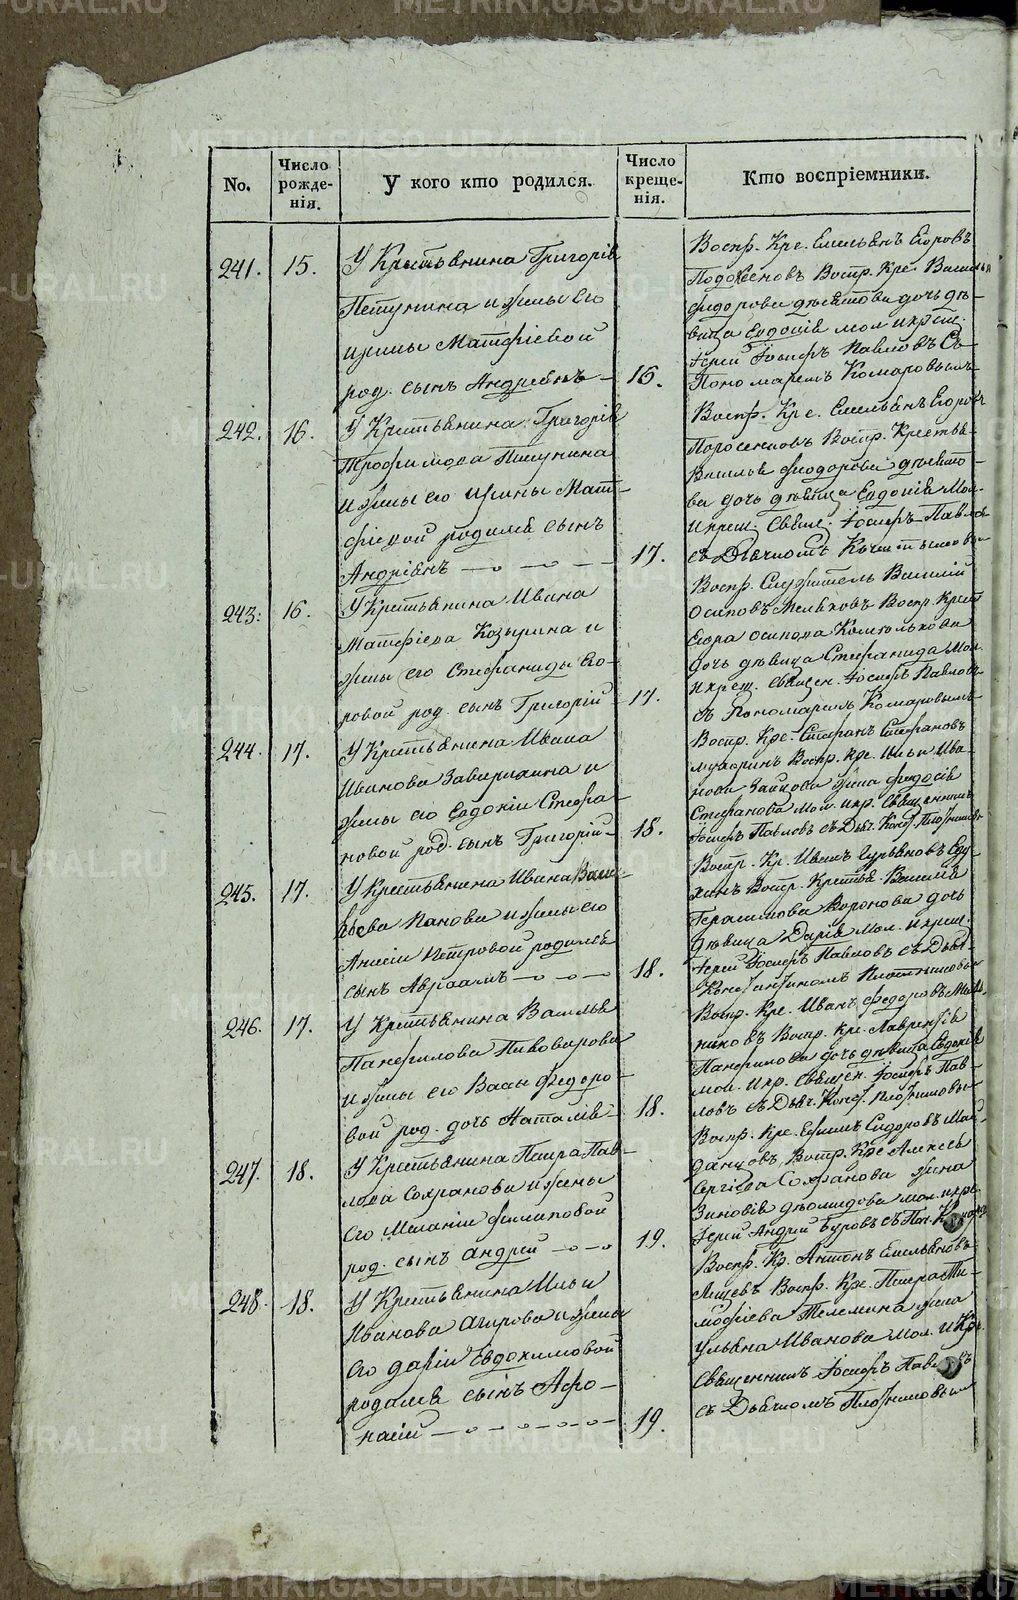 METRIKI.GASO-URAL.RU
No.
Число рожде-нія.
У кого кто родился.
Число креще-нія.
Кто воспріемники.
241.
15.
У Крестьянина Григорія
Петунина и жены его
Ирины Матфіевой
род. сынъ Андреянъ
16.
Воспр. Кре. Емельянъ Егоровъ
Воспр. Кре. Василья
Федорова дочь дѣ-
вица Евдокія мол. и крест.
Іерей Іосифъ Павловъ Съ
Пономаремъ Комаровымъ
242.
16.
У Крестьянина Григорія
Трофимова Петунина
и жены его Ирины Мат-
фіевой родился сынъ
Андріянъ
17.
Воспр. Кре. Емельянъ Егоровъ
Воспр. Крестья.
Василья Феодорова
ва дочь дѣвица Евдокія Мол.
и крест. Свящ. Іосифъ Павловъ
съ Дьячкомъ
243.
16.
У Крестьянина Ивана
Матфіева Козырина и
жены его Стефаниды Его-
ровой род. сынъ Григорій
17.
Воспр. Служитель Василій
Осиповъ Мельковъ Воспр. Крест.
Егора Осипова
дочь дѣвица Стефанида Мол.
и крещ. Священ. Іосифъ Павловъ
съ Пономаремъ Комаровымъ
244.
17.
У Крестьянина Ивана
Иванова Завирихина и
жены его Евдокіи Стефа-
новой род. сынъ Григорій
18.
Воспр. Кре. Стефанъ Стефановъ
Мухоринъ Воспр. Кре. Ильи Ива-
нова Зайцова жена Федосія
Стефанова Мол. и кр. Священникъ
Іосифъ Павловъ съ Дьяч. Конст. Плотниковъ
245.
17.
У Крестьянина Ивана Васи-
льева Панова и жены его
Анисіи Петровой родился
сынъ Авраамъ
18.
Воспр. Кр. Иванъ Гурьяновъ
Воспр. Крестья. Василія
Герасимова Воронова дочь
дѣвица Дарія Мол. и крещ.
Іерей Іосифъ Павловъ съ Дьяч.
Константиномъ Плотниковымъ
246.
17.
У Крестьянина Василья
Панфилова Пивоварова
и жены его Вассы Федоро-
вой род. дочь Наталія
18.
Воспр. Кре. Иванъ Федоровъ
Воспр. Кре. Лаврентія
Панфилова дочь дѣвица Евдокія
мол. и кр. Священ. Іосифъ Пав-
ловъ съ Дьяч. Конст. Плотниковы
247.
18.
У Крестьянина Петра Пав-
лова Сохранова и жены
его Меланіи Филиповой
род. сынъ Андрей
19.
Воспр. Кре. Ефимъ Сидоровъ
Воспр. Кре. Алексея
Сергіева Сохранова жена
Зиновія Діомидова мол. и кре.
Іерей Андрей Буровъ съ Пон.
248.
18.
У Крестьянина Ильи
Иванова и жены
его Даріи Евдокимовой
родился сынъ Афо-
насій
19.
Воспр. Кр. Антонъ Емельяновъ
Воспр. Кре. Петра Ти-
мофіева Телемина жена
Ульяна Иванова мол. и Кр.
Священникъ Іосифъ Павловъ
съ Дьячкомъ Плотниковым